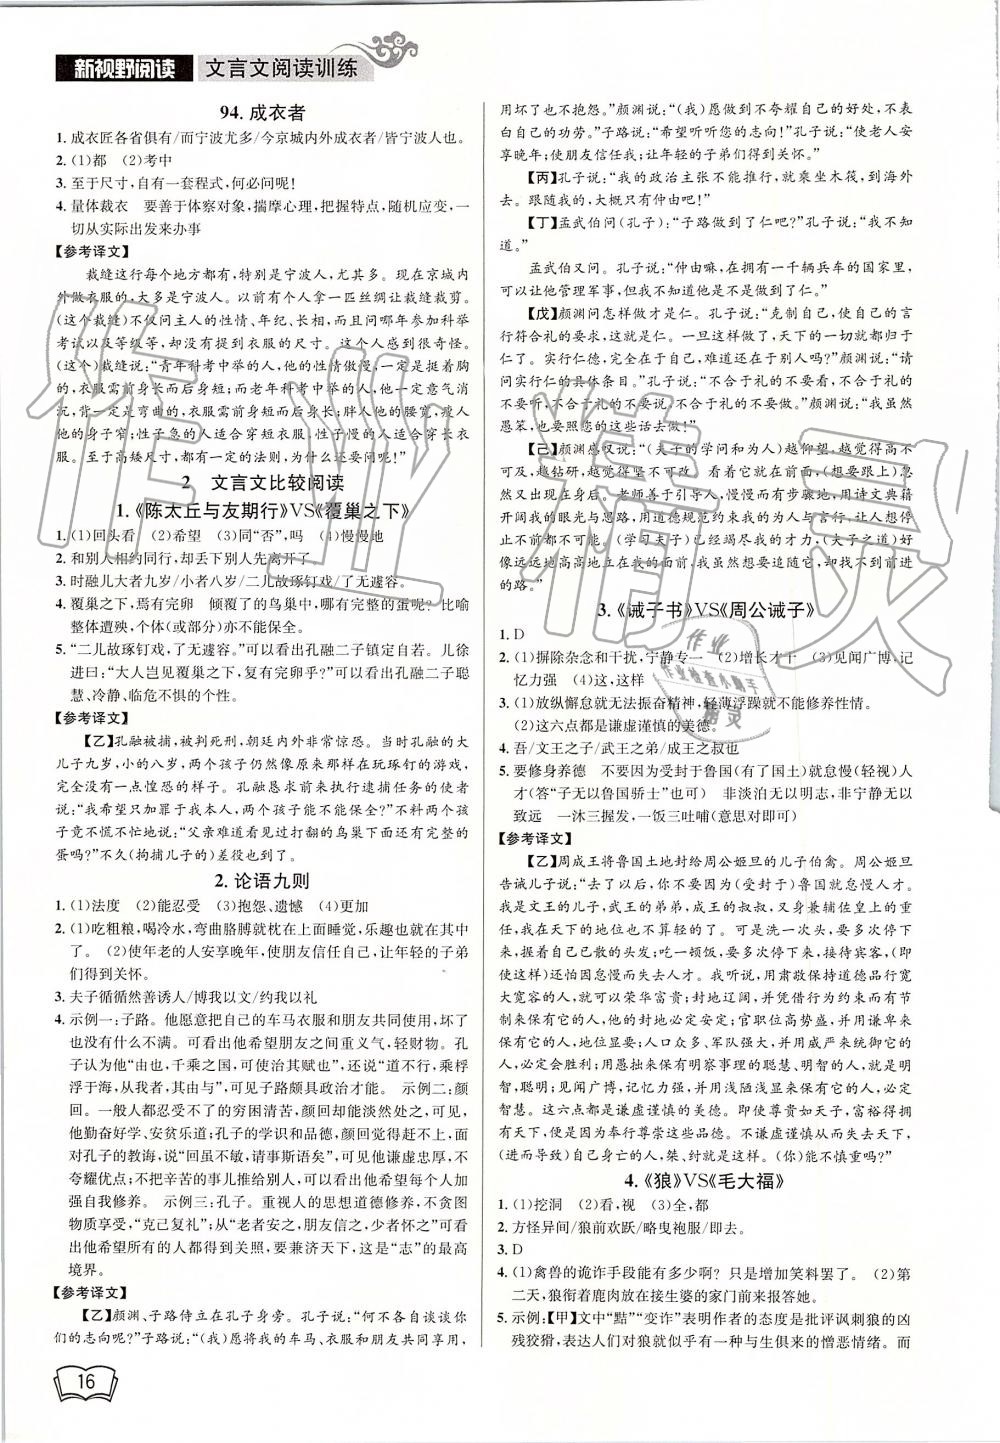 新视野阅读 文言文阅读训练
94. 成衣者
1. 成衣匠各省俱有/而宁波尤多/今京城内外成衣者/皆宁波人也。
2. (1)都 (2)考中
3. 至于尺寸,自有一套程式,何必问呢!
4. 量体裁衣 要善于体察对象,揣摩心理,把握特点,随机应变,一
切从实际出发来办事
【参考译文】
裁缝这行每个地方都有,特别是宁波人,尤其多。现在京城内
外做衣服的,大多是宁波人。以前有个人拿一匹丝绸让裁缝裁剪。
(这个裁缝)不仅问主人的性情、年纪、长相,而且打听他何年参加科举
考试以及等级等,却没有提到衣服的尺寸。那个人感到很奇怪。
(这个)裁缝说:“青年科考中举的人,他的性情傲慢,一定是挺着胸,
衣服需要前身长而后身短;而老年科考中举的人,他一定意气消
沉,背一定是弯曲的,衣服需要前身短而后身长;胖人他的腰宽,瘦人
他的身子窄;性子急的人适合穿短衣服,性子慢的人适合穿长衣
服。至于高矮尺寸,都有一定的法则,为什么还要问呢?”
2 文言文比较阅读
1.《陈太丘与友期行》VS《覆巢之下》
1. (1)回头看 (2)希望 (3)同“否”,吗 (4)慢慢地
2. 和别人相约同行,却丢下别人先离开了
3. 时融儿大者九岁/小者八岁/二儿故琢钉戏/了无遽容。
4. 覆巢之下,焉有完卵 倾覆了的鸟巢中,哪有完整的蛋呢?比喻
整体遭殃,个体(或部分)亦不能保全。
5. “二儿故琢钉戏,了无遽容。”可以看出孔融二子镇定自若。儿徐
进曰:“大人岂见覆巢之下,复有完卵乎?”可以看出孔融二子聪
慧、冷静,临危不惧的个性。
【参考译文】
【乙】孔融被捕,被判死刑,朝廷内外非常惊恐。当时孔融的大
儿子九岁,小的八岁,两个孩子仍然像原来一样在玩琢钉的游戏,
完全没有一点惶恐的样子。孔融恳求前来执行逮捕任务的使者
说:“我希望只加罪于我本人,两个孩子能不能保全?”不料两个孩
子竟不慌不忙地说:“父亲难道看见过打翻的鸟巢下面还有完整的
蛋吗?”不久(拘捕儿子的)差役也到了。
2. 论语九则
1. (1)法度 (2)能忍受 (3)抱怨、遗憾 (4)更加
2. (1)吃粗粮,喝冷水,弯曲胳膊就枕在上面睡觉,乐趣也就在其中
了。 (2)使年老的人安享晚年,使朋友信任自己,让年轻的子弟
们得到关怀。
3. 夫子循循然善诱人/博我以文/约我以礼
4. 示例一:子路。他愿意把自己的车马衣服和朋友共同使用,坏了
也没有什么不满。可看出他希望朋友之间重义气,轻财物。孔
子认为他“由也,千乘之国,可使治其赋也”,还说“道不行,乘桴
浮于海,从我者,其由与”,可见子路颇具政治才能。 示例二:颜
回。一般人都忍受不了的穷困清苦,颜回却能淡然处之,可见,
他勤奋好学、安贫乐道;孔子的学识和品德,颜回赶不上,面
对孔子的教诲,说“回虽不敏,请事斯语矣”,可见他谦虚忠厚,不
夸耀优点;不把辛苦的事儿推给别人,可见他希望人们能够更
多地进行自我修养。 示例三:孔子。重视人的思想道德修养,不贪图
物质享受,“克己复礼”;从“老者安之,朋友信之,少者怀之”可看
出他希望所有的人都得到关照,要兼济天下,这是“志”的最高
境界。
【参考译文】
【乙】颜渊、子路侍立在孔子身旁。孔子说:“何不各自谈谈你
们的志向呢?”子路说:“(我)愿将我的车马、衣服和朋友共同享用,
用坏了也不抱怨。”颜渊说:“(我)愿做到不夸耀自己的好处,不表
白自己的功劳。”子路说:“希望听听您的志向!”孔子说:“使老人安
享晚年;使朋友信任我;让年轻的子弟们得到关怀。”
【丙】孔子说:“我的政治主张不能推行,就乘坐木筏,到海外
去。跟随我的,大概只有仲由吧!”
【丁】孟武伯问(孔子):“子路做到了仁吧?”孔子说:“我不知
道。”
孟武伯又问。孔子说:“仲由嘛,在拥有一千辆兵车的国家里,
可以让他管理军事,但我不知道他是不是做到了仁。”
【戊】颜渊问怎样做才是仁。孔子说:“克制自己,使自己的言
行符合礼的要求,这就是仁。一旦这样做了,天下的一切就都归于
仁了。实行仁德,完全在于自己,难道还在于别人吗?”颜渊说:“请
问实行仁的具体条目。”孔子说:“不合于礼的不要看,不合于礼的
不要听,不合于礼的不要说,不合于礼的不要做。”颜渊说:“我虽然
愚笨,也要照您的这些话去做!”
【己】颜渊感叹说:“(夫子的学问和为人)越仰望,越觉得高不
可及,越钻研,越觉得艰深。看它就在前面,(想要跟上)忽然
又觉得在后面。老师善于引导我们,用文化知识来丰富
我的眼光与思路,用道德规范约束我的为人与言行,让人想停
止不前都不可能。(学习夫子)我尽我的才力,(夫子之道)好
像远远地高高地立在我的面前,我虽然想要追随它,却找不到前进
的路。”
3.《诫子书》VS《周公诫子》
1. D
2. (1)摒除杂念和干扰,宁静专一 (2)增长才干 (3)见闻广博,记
忆力强 (4)这,这样
3. (1)放纵懈怠就无法振奋精神,轻薄浮躁就不能修养性情。
(2)这六点都是谦虚谨慎的美德。
4. 吾/文王之子/武王之弟/成王之叔也
5. 要修身养德 不要因为受封于鲁国(有了国土)就怠慢(轻视)人
才(答“子无以鲁国骄士”也可) 非淡泊无以明志,非宁静无以
致远 一沐三握发,一饭三吐哺(意思对即可)
【参考译文】
【乙】周成王将鲁国土地封给周公姬旦的儿子伯禽。周公姬旦
告诫儿子说:“去了以后,你不要因为(受封于)鲁国就怠慢人才。
我是文王的儿子,武王的弟弟,成王的叔叔,又身兼辅佐皇上的重
任,我在天下的地位也不算轻的了。可是洗一次头,要多次停下
来,握着自己已散的头发;吃一顿饭,要多次停下来,接待宾客,(即
使这样)还怕因怠慢而失去人才。我听说,用肃敬保持道德品行宽
大宽容的人,可以荣华富贵;封地辽阔,并且物产丰富的人而有节
制来保有它的人,他的封地必定安定;官职位高势盛,并用谦卑来
保有它的人,必定高贵;人口众多、军队强大,并用威严来保有它的
人,必定会胜利;用愚拙来保有明察事理的聪慧、明智的人,也是明
智,聪聪;见闻广博,记忆力强,并用浅陋浅显来保有它的人,必定
智慧。这六点都是谦虚谨慎的美德。即使尊贵如天子,富裕得拥
有天下,便是因为奉行尊崇这些品德。不谦虚谨慎从而失去天下,
(进而导致)自己身亡的人,桀、纣就是这样。(你)能不慎重吗?”
4.《狼》VS《毛大福》
1. (1)挖洞 (2)看,视 (3)全,都
2. 方怪异间/狼前欢跃/略曳袍服/即去。
3. D
4. (1)禽兽的诡诈手段能有多少啊? 只是增加笑料罢了。 (2)第
二天,狼衔着鹿肉放在接生婆的家门前来报答她。
5. 示例:【甲】文中“黠”“变诈”表明作者的态度是批评讽刺狼的凶
残狡猾,表达人们对狼就似乎有一种与生俱来的憎恶情绪。而
16